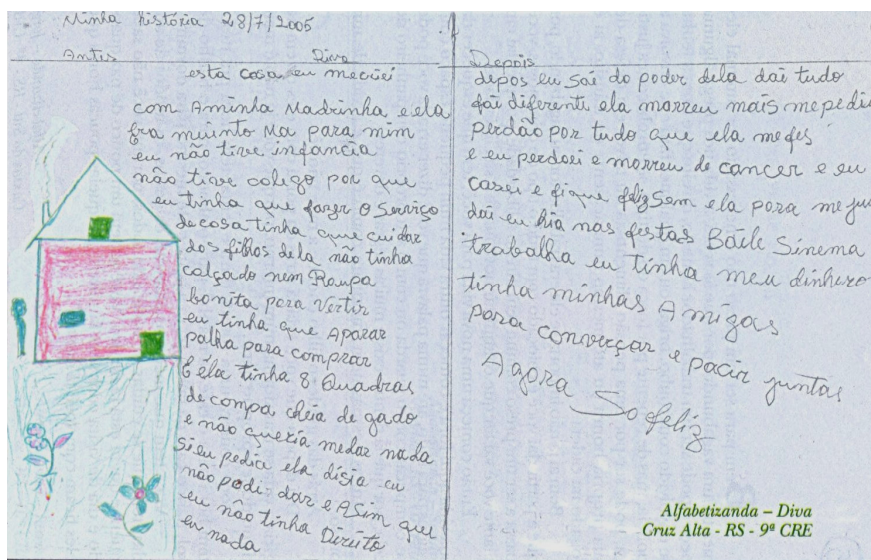 Minha história 28/7/2005
Antes
Diva
esta casa eu meciei
com Aminha Madrinha e ela
Era muinto Ma para mim
eu não tive infancia
não tive colego por que
eu tinha que fazer o Serviço
de cosa tinha que cuidar
dos filhos dela não tinha
calçado nem Roupa
bonita para Vertir
eu tinha que Aparar
palha para comprar
E éla tinha 8 Quadras
de compa cheia de gado
e não queria medar nada
Si eu pedia ela disia eu
não podi dar e ASim que
eu não tinha Direito
en nada
Depois
depos eu Sai do poder dela dai tudo
foi diferenti ela morreu mais me pediu
perdão por tudo que ela me fes
e eu perdoei e morreu de cancer e eu
casei e fique feliz Sem ela para me
dai eu hia nas festas Baile Sinema
trabalha eu tinha meu dinhero
tinha minhas Amigas
para converçar e pacir juntas
Agora So feliz
Alfabetizanda – Diva
Cruz Alta - RS - 9ª CRE